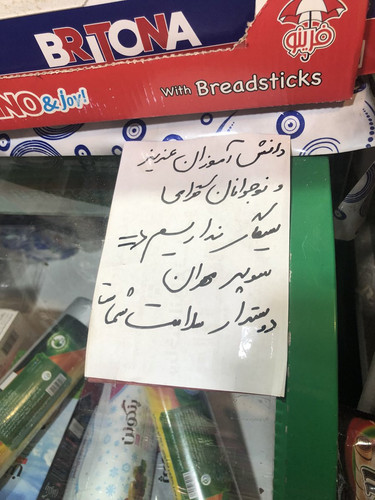 BRITONA
فرینو
NO & joy!
With Breadsticks
دانش آموزان عزیز
و نوجوانان گرامی
سیگار نداریم
سوپر مهران
دوستدار سلامت شماست